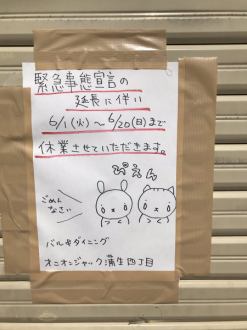 緊急事態宣言の
延長に伴い
6/1(火)～6/20(日)まで
休業させていただきます。
ぴえん
ごめん
なさい
バルキダイニング
オニオンジャック蒲生四丁目